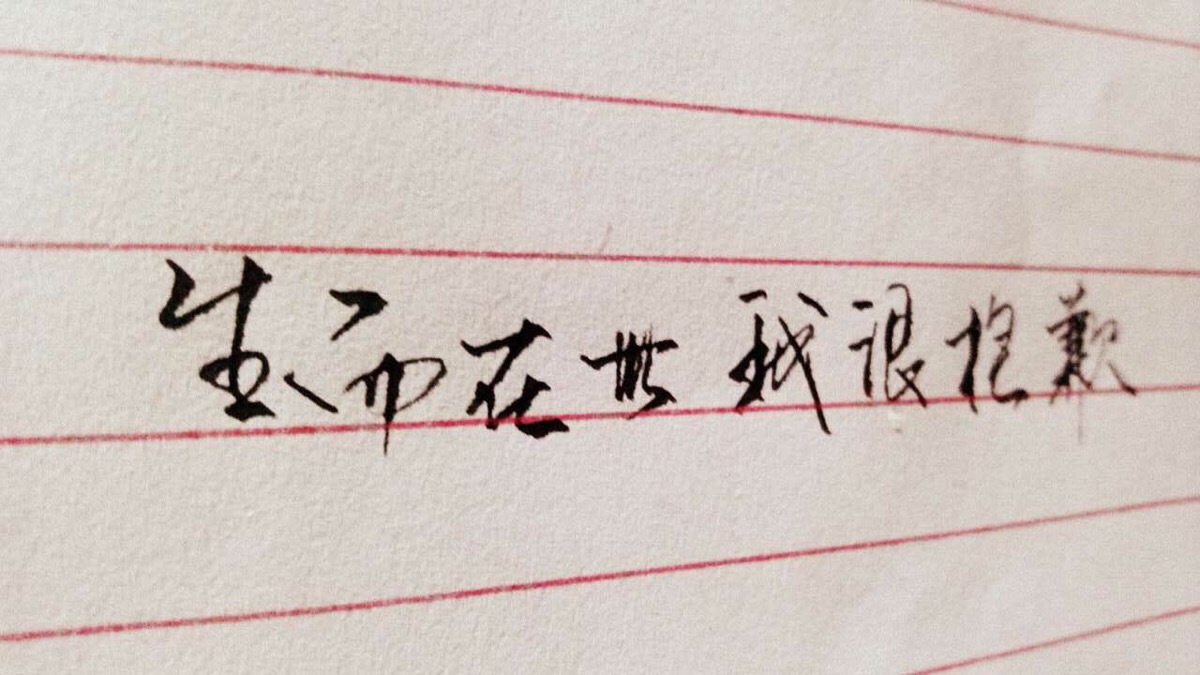 生而在世 我很抱歉